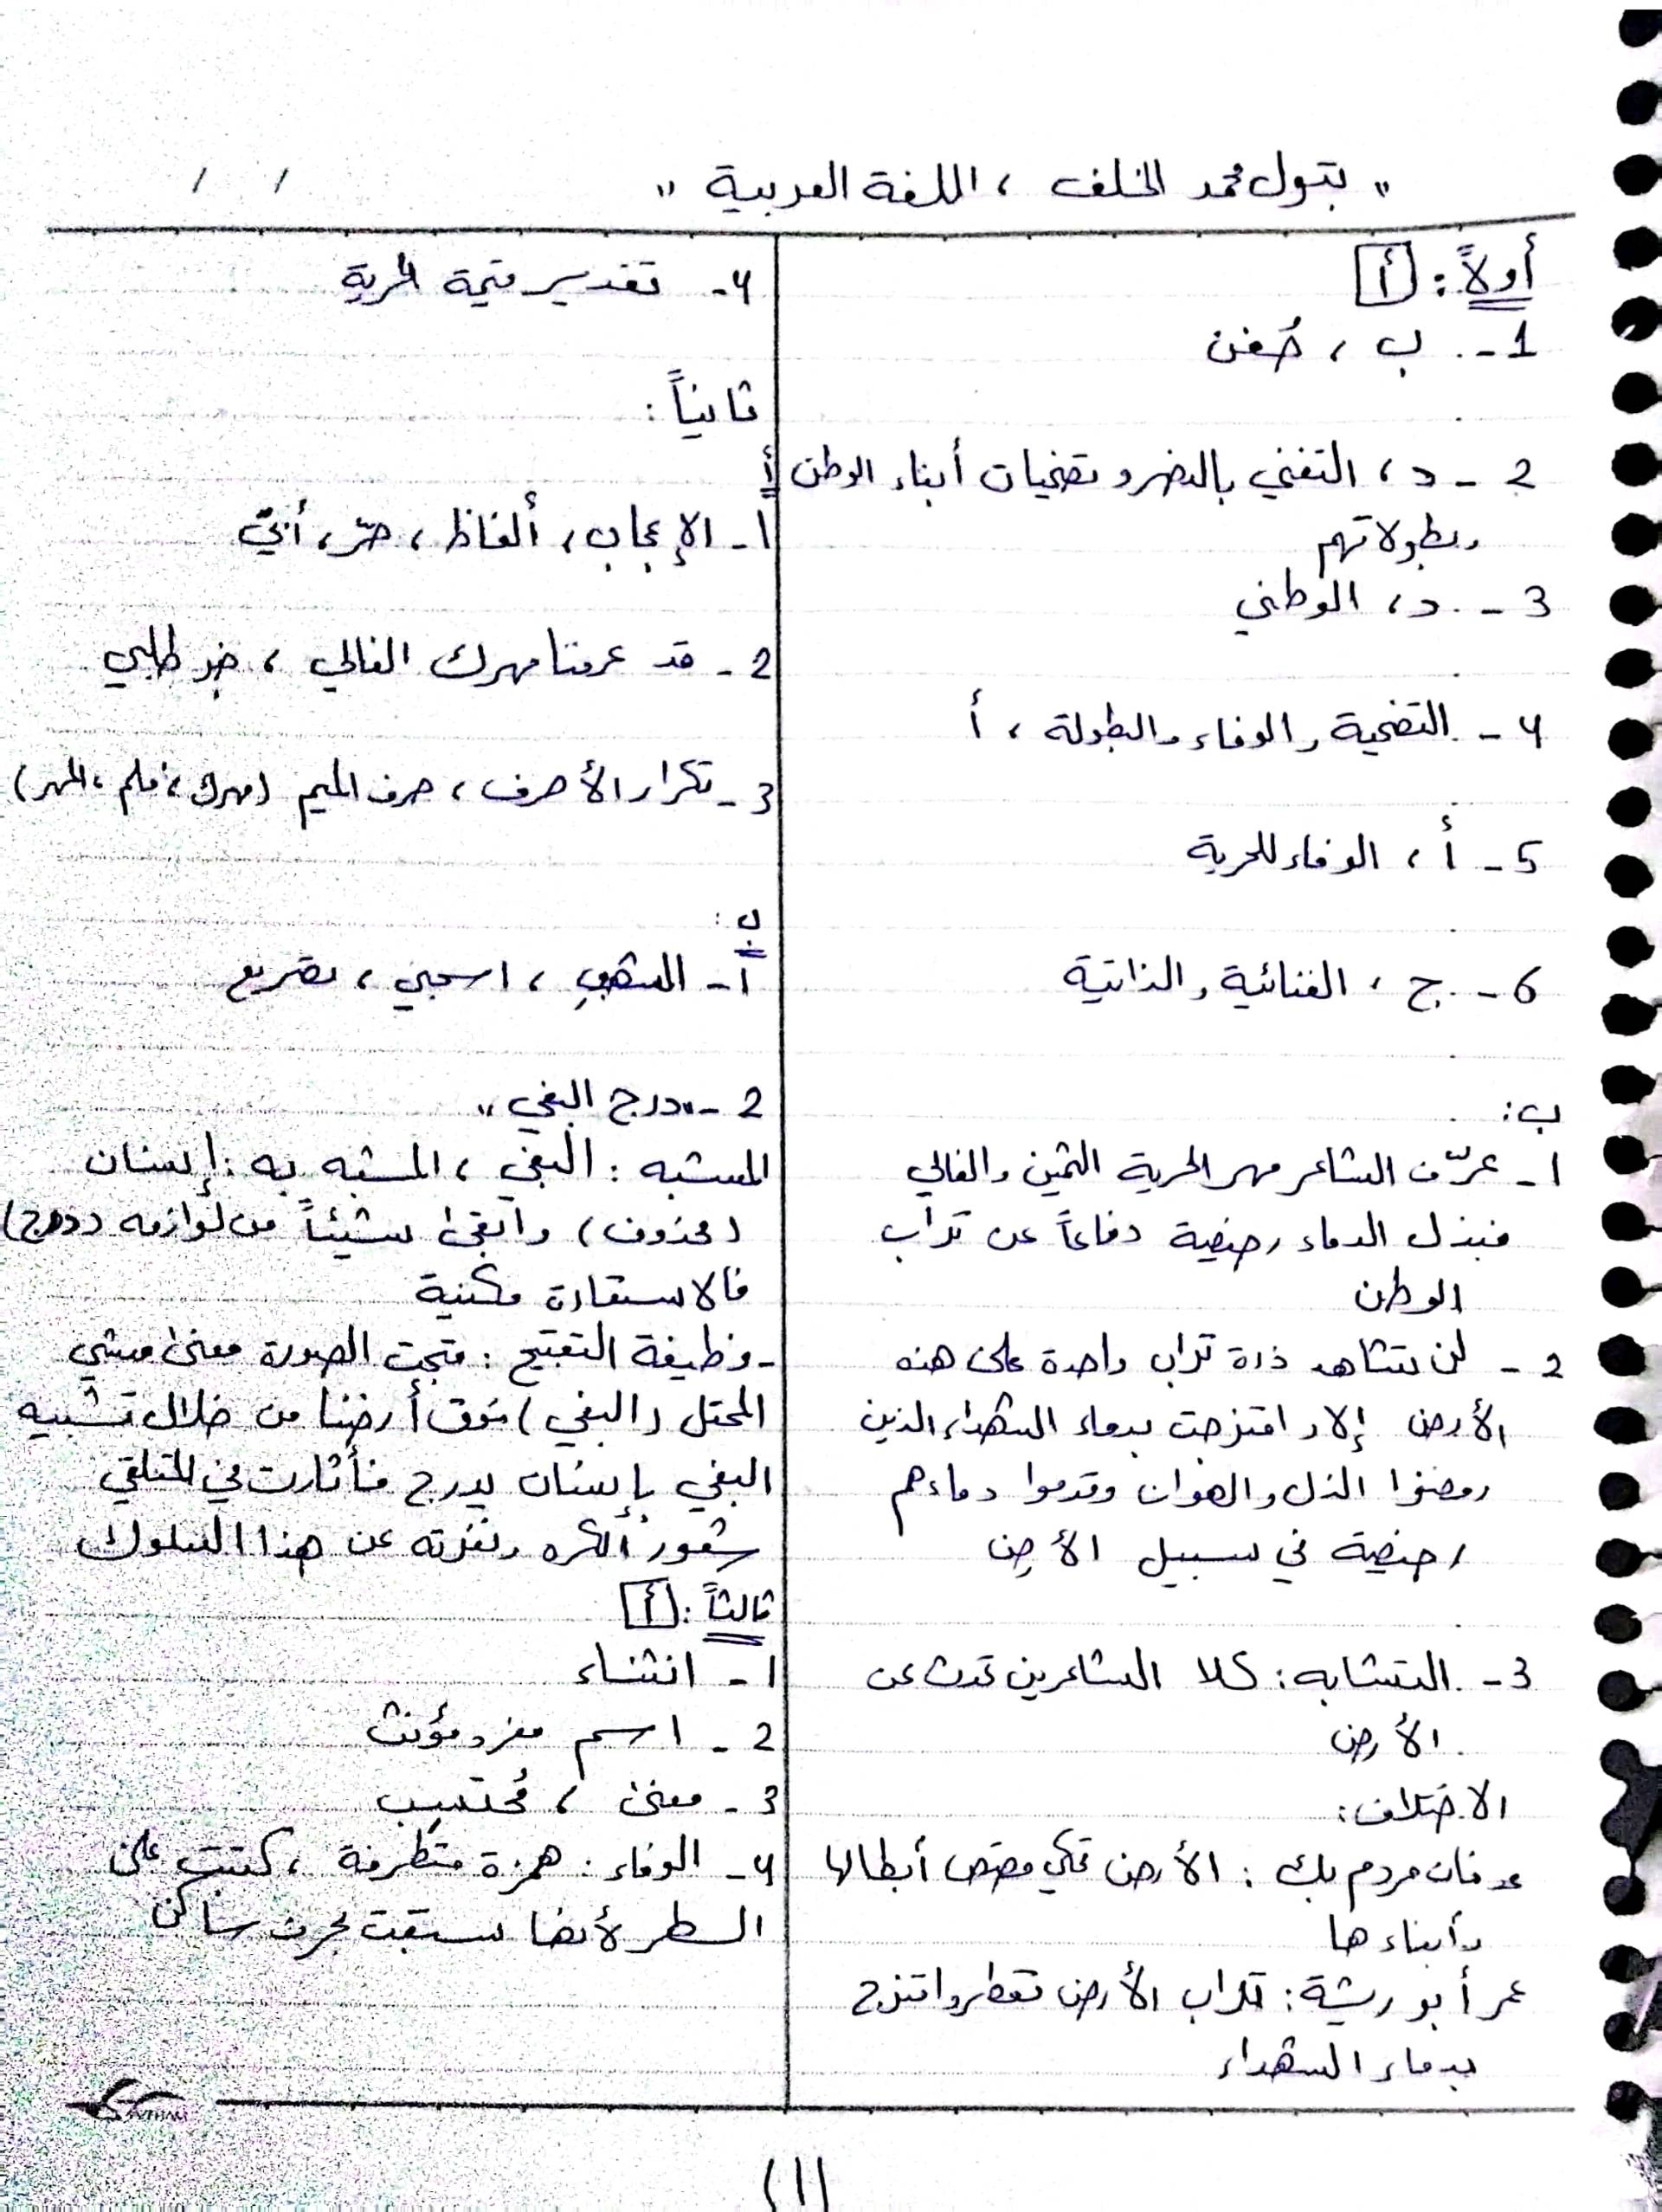 " بتول محمد الخلف ، اللغة العربية "
/ /
أولاً : أ
1 - ب ، ضغن
2 - د ، التغني بالنصر وتضحيات أبناء الوطن
وبطولاتهم
3 - د ، الوطني
4 - التضحية والوفاء والبطولة ، أ
5 - أ ، الوفاء للحرية
6 - ج ، الغنائية والذاتية
ب :
1 - عرّف الشاعر مهر الحرية الثمين والغالي
فبذل الدماء رخيصة دفاعاً عن تراب
الوطن
2 - لن تشاهد ذرة تراب واحدة على هذه
الأرض إلا وامتزجت بدماء الشهداء الذين
رفضوا الذل والهوان وقدموا دماءهم
رخيصة في سبيل الأرض
3 - التشابه : كلا الشاعرين تحدث عن
الأرض
الاختلاف :
عدنان مردم بك : الأرض تحكي قصص أبطالها
وأبناءها
عمر أبو ريشة : تراب الأرض تعطر وامتزج
بدماء الشهداء
4 - تقدير قيمة الحرية
ثانياً :
أ
1 - الإعجاب ، ألفاظ ، حرّ ، أبيّ
2 - قد عرفنا مهرك الغالي ، خبر طلبي
3 - تكرار الأحرف ، حرف الميم ( مهرك ، فلم ، المهر )
ب :
1 - الشهبِ ، اسحبي ، تصريع
2 - " درج البغي "
المشبه : البغي ، المشبه به : إنسان
( محذوف ) وأبقى شيئاً من لوازمه ( درج )
فالاستعارة مكنية
- وظيفة التقبيح : قبحت الصورة معنى مشي
المحتل ( البغي ) فوق أرضنا من خلال تشبيه
البغي بإنسان يدرج فأثارت في المتلقي
شعور الكره ونفرته عن هذا السلوك
ثالثاً : أ
1 - انتشاء
2 - اسم مفرد مؤنث
3 - معنى ،
4 - الوفاء : همزة متطرفة ، كتبت على
السطر لأنها سبقت بحرف ساكن
(1)